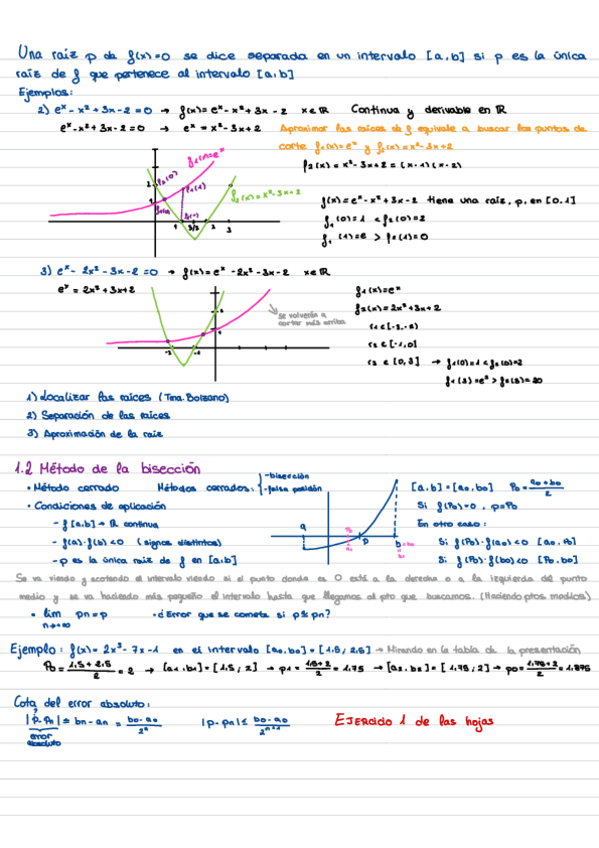 Una raíz p de f(x)=0 se dice separada en un intervalo [a,b] si p es la única
raíz de f que pertenece al intervalo [a,b]
Ejemplos:
2) eˣ-x²+3x-2=0 → f(x)=eˣ-x²+3x-2 x∈ℝ Continua y derivable en ℝ
eˣ-x²+3x-2=0 → eˣ=x²-3x+2 Aproximar las raíces de f equivale a buscar los puntos de
corte f₁(x)=eˣ y f₂(x)=x²-3x+2
f₂(x)=x²-3x+2=(x-1)(x-2)
f₁(x)=eˣ
f₂(x)=x²-3x+2
f₂(0)
f₁(1)
2
1
1 3/2 2 3
f(x)=eˣ-x²+3x-2 tiene una raíz, p, en [0,1]
f₁(0)=1 < f₂(0)=2
f₁(1)=e > f₂(1)=0
3) eˣ-2x²-3x-2=0 → f(x)=eˣ-2x²-3x-2 x∈ℝ
eˣ=2x²+3x+2
se volvería a
cortar más arriba
-2 -1
f₁(x)=eˣ
f₂(x)=2x²+3x+2
r₁∈[-2,-1]
r₂∈[-1,0]
r₃∈[0,3] → f₁(0)=1<f₂(0)=2
f₁(3)=e³>f₂(3)=20
1) Localizar las raíces (Tma. Bolzano)
2) Separación de las raíces
3) Aproximación de la raíz
1.2 Método de la bisección
• Método cerrado Métodos cerrados: { -bisección
-falsa posición
• Condiciones de aplicación
- f [a,b] → ℝ continua
- f(a)·f(b)<0 (signos distintos)
- p es la única raíz de f en [a,b]
a p b
[a,b]=[a₀,b₀] P₀=a₀+b₀/2
Si f(P₀)=0, p=P₀
En otro caso:
Si f(P₀)·f(a₀)<0 [a₀,P₀]
Si f(P₀)·f(b₀)<0 [P₀,b₀]
Se va viendo y acotando el intervalo viendo si el punto donde es 0 está a la derecha o a la izquierda del punto
medio y se va haciendo más pequeño el intervalo hasta que llegamos al pto que buscamos. (Haciendo ptos medios)
• lim pn=p •¿Error que se comete si p≈pn?
n→∞
Ejemplo: f(x)=2x³-7x-1 en el intervalo [a₀,b₀]=[1.5,2.5] → Mirando en la tabla de la presentación
P₀=1.5+2.5/2=2 → [a₁,b₁]=[1.5,2] → p₁=1.5+2/2=1.75 → [a₂,b₂]=[1.75,2] → p₀=1.75+2/2=1.875
Cota del error absoluto:
|p-pn|≤bn-an=b₀-a₀/2ⁿ |p-pn|≤b₀-a₀/2ⁿ⁺¹ EJERCICIO 1 de las hojas
error
absoluto